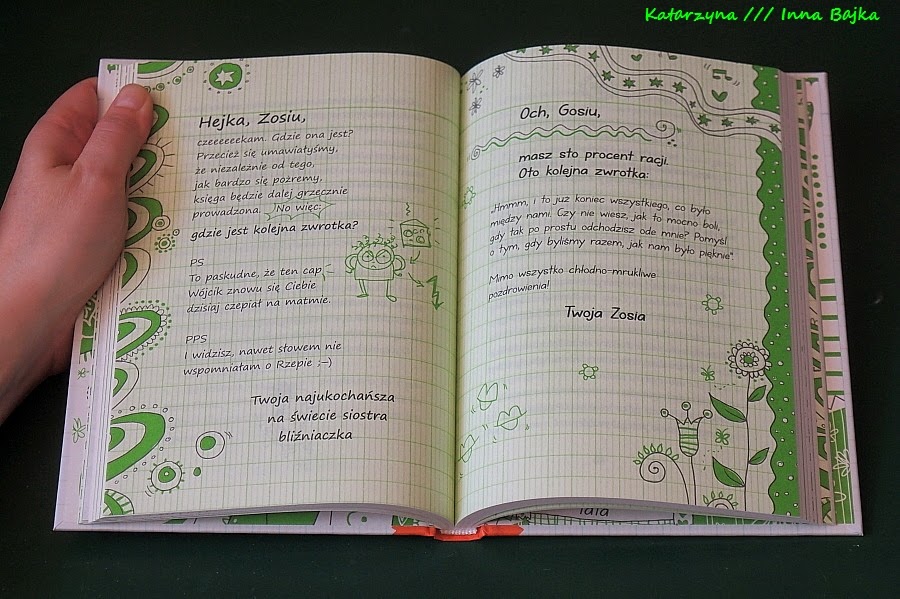 Katarzyna /// Inna Bajka
Hejka, Zosiu,
czeeeeeekam. Gdzie ona jest?
Przecież się umawiałyśmy,
że niezależnie od tego,
jak bardzo się pożremy,
księga będzie dalej grzecznie
prowadzona. No więc:
gdzie jest kolejna zwrotka?
PS
To paskudne, że ten cap
Wójcik znowu się Ciebie
dzisiaj czepiał na matmie.
PPS
I widzisz, nawet słowem nie
wspomniałam o Rzepie ;–)
Twoja najukochańsza
na świecie siostra
bliźniaczka
Och, Gosiu,
masz sto procent racji.
Oto kolejna zwrotka:
„Hmmm, i to już koniec wszystkiego, co było
między nami. Czy nie wiesz, jak to mocno boli,
gdy tak po prostu odchodzisz ode mnie? Pomyśl
o tym, gdy byliśmy razem, jak nam było pięknie"
Mimo wszystko chłodno-mrukliwe
pozdrowienia!
Twoja Zosia